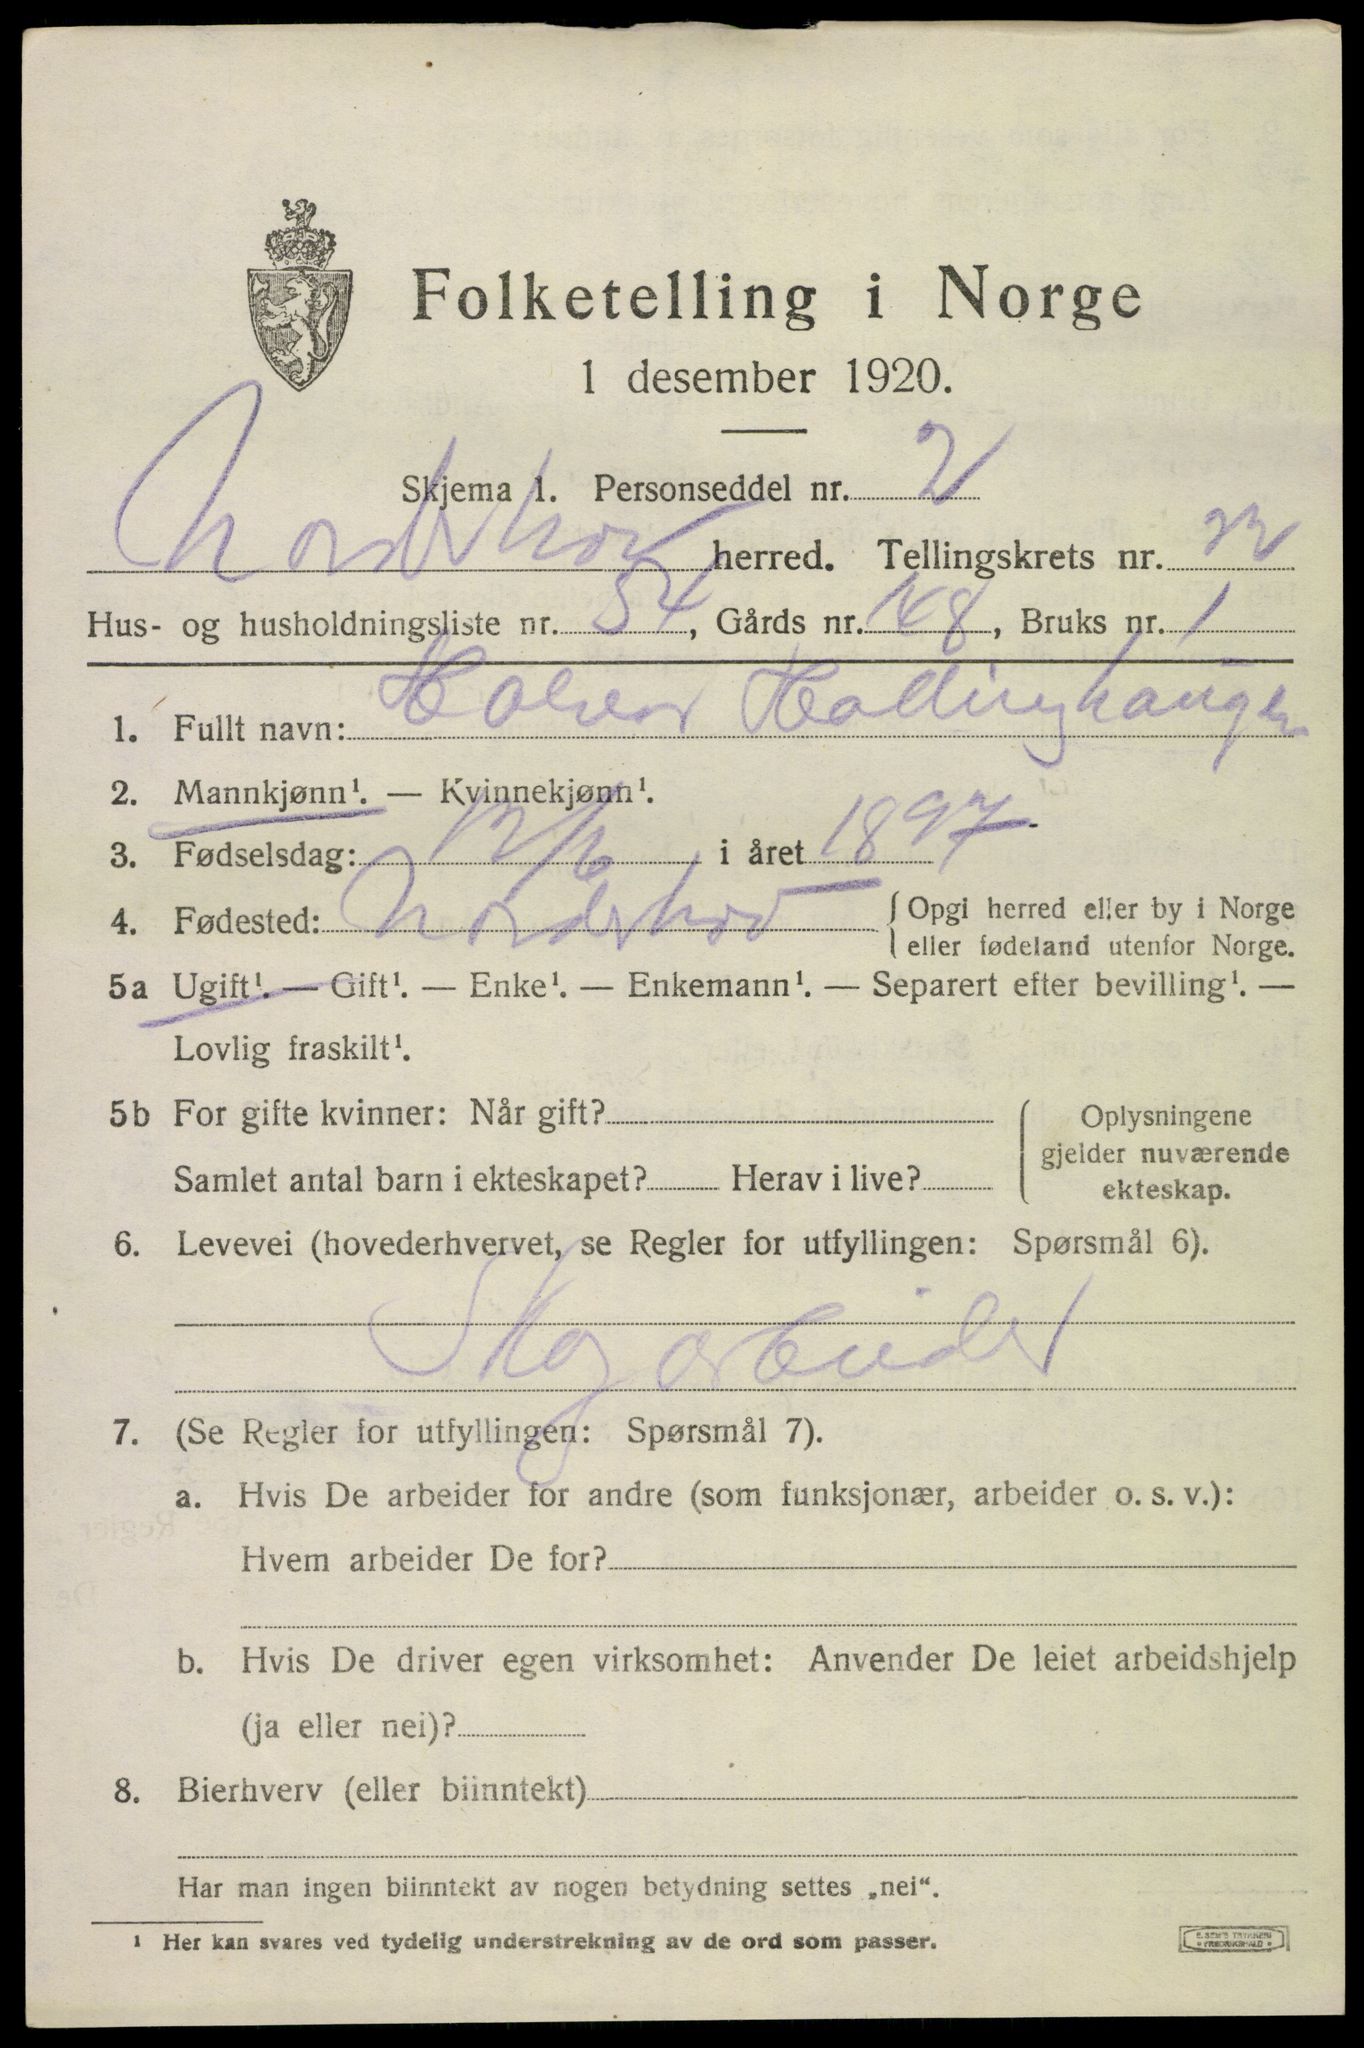 Folketelling i Norge
1 desember 1920.
Skjema 1. Personseddel nr. 2
Norderhov herred. Tellingskrets nr. 12
Hus- og husholdningsliste nr. 54, Gårds nr. 148, Bruks nr. 1
1. Fullt navn: Halvor Hallinghaugen
2. Mannkjønn¹. — Kvinnekjønn¹.
3. Fødselsdag: 12/6 i året 1897
4. Fødested: Norderhov { Opgi herred eller by i Norge
eller fødeland utenfor Norge.
5a Ugift¹. — Gift¹. — Enke¹. — Enkemann¹. — Separert efter bevilling¹. —
Lovlig fraskilt¹.
5b For gifte kvinner: Når gift?
Samlet antal barn i ekteskapet? Herav i live?
Oplysningene
gjelder nuværende
ekteskap.
6. Levevei (hovederhvervet, se Regler for utfyllingen: Spørsmål 6).
Skogarbeider
7. (Se Regler for utfyllingen: Spørsmål 7).
a. Hvis De arbeider for andre (som funksjonær, arbeider o. s. v.):
Hvem arbeider De for?
b. Hvis De driver egen virksomhet: Anvender De leiet arbeidshjelp
(ja eller nei)?
8. Bierhverv (eller biinntekt)
Har man ingen biinntekt av nogen betydning settes „nei“.
¹ Her kan svares ved tydelig understrekning av de ord som passer.
E. SEM'S TRYKKERI
• FREDRIKSHALD •